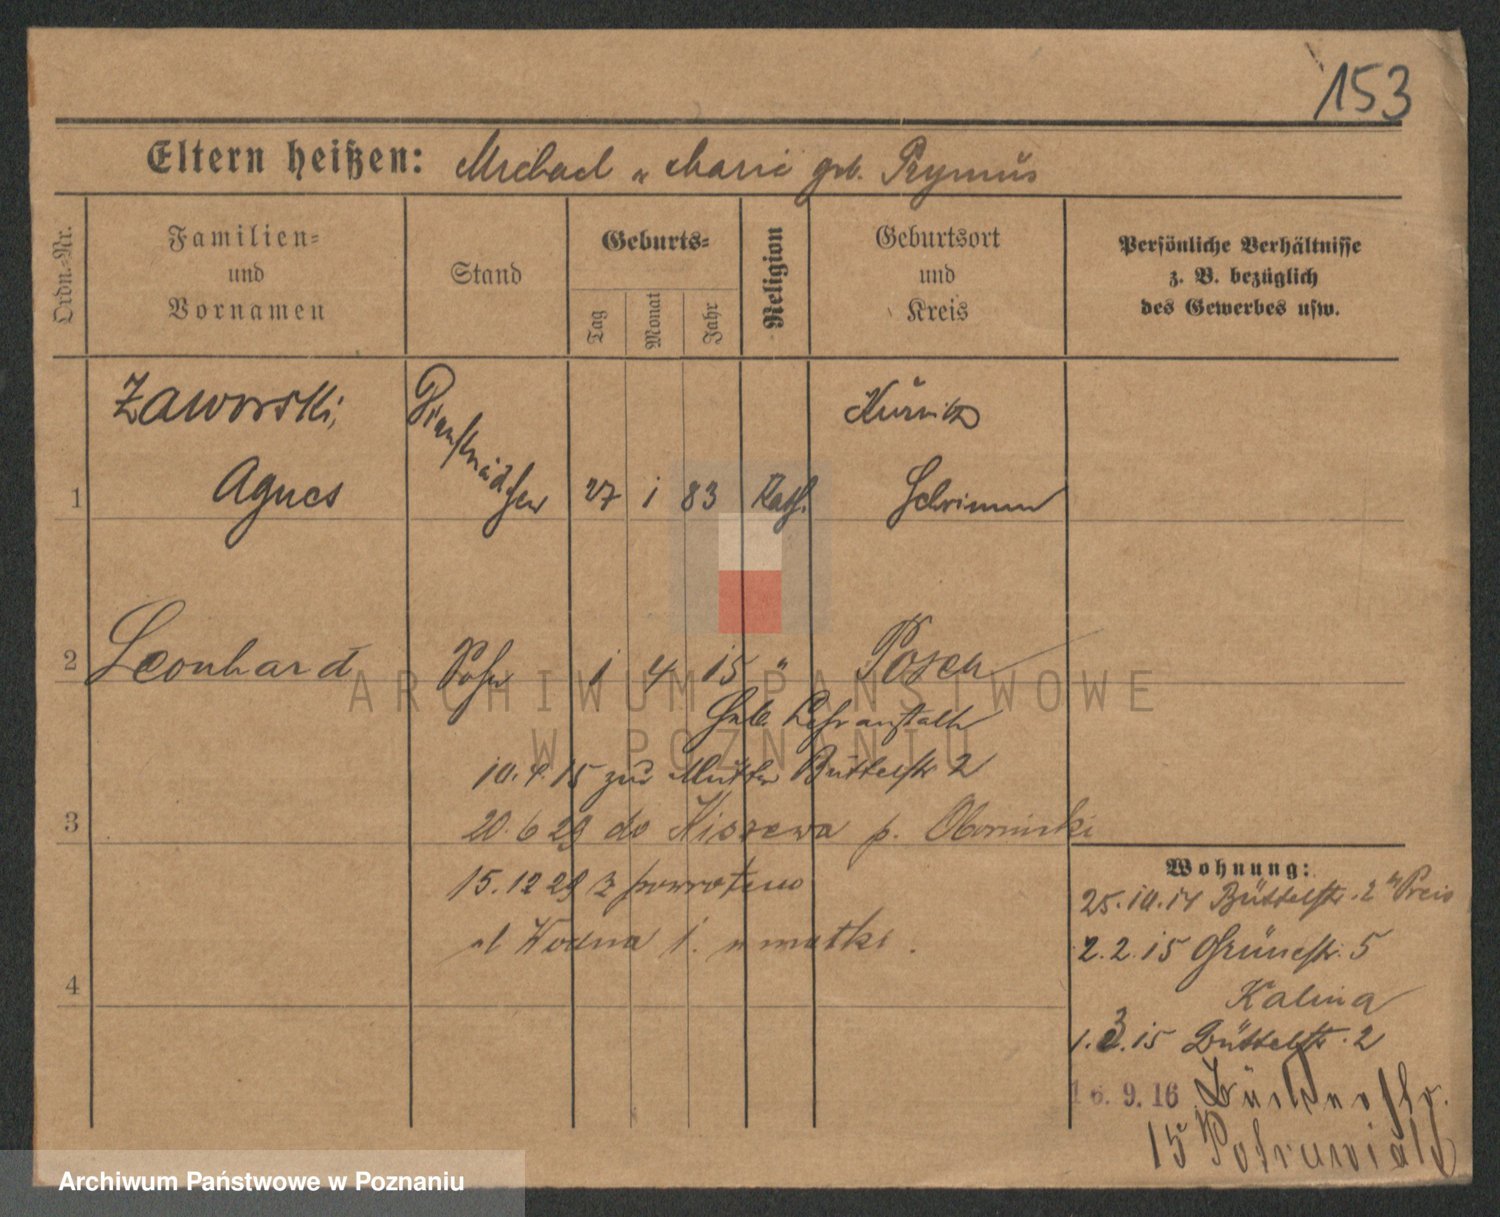 153
Eltern heißen: Michael u Marie geb. Rzymús
Ordn.-Nr.
Familien=
und
Vornamen
Stand
Geburts=
Tag
Monat
Jahr
Religion
Geburtsort
und
Kreis
Persönliche Verhältnisse
z. B. bezüglich
des Gewerbes usw.
Zaworski,
Kúrnik
1 Agnes Dienstmädchen 27 1 83 Kath. Schrimm
2 Leonhard Sohn 1 4 15 " Posen
Heb. Lehranstalt
10.4.15 zur Mutter Büttelstr 2
3
20.6.29 do Kiszewa p. Obornicki
15.12.29 z powrotem
ul Wodna 1. u matki.
4
Wohnung:
25.10.14 Büttelstr. 2
2.2.15 Grünestr. 5
Kalina
1.3.15 Büttelstr. 2
16.9.16
15
ARCHIWUM PAŃSTWOWE
W POZNANIU
Archiwum Państwowe w Poznaniu